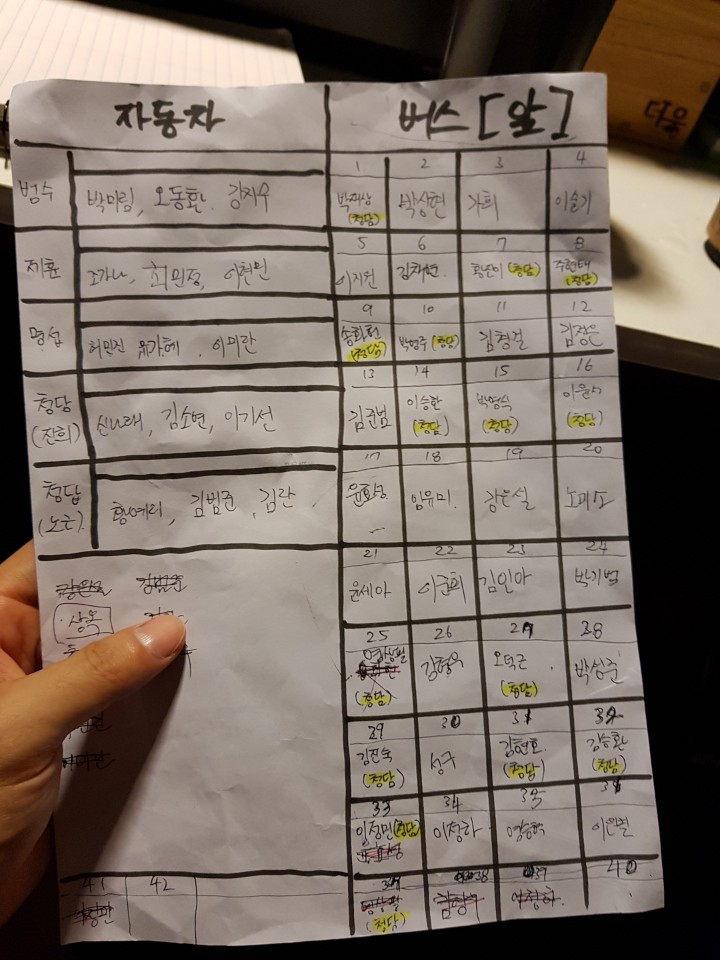 다음
자동차
버스 [앞]
범수
박미림, 오동환. 강지우
1 2 3 4
박상현
가희
이슬기
(청담)
제훈
조가나, 최민정, 이현민
5 6 7 8
이지원
김채연
황은이 (청담)
주현태
(청담)
명섭
허민진 유가혜, 이미란
9 10 11 12
송화현
(청담)
박형주 (청담)
김형걸
김장은
청담
(진희)
신나래, 김소연, 이기선
13 14 15 16
김준범
이승환
(청담)
박영식
(청담)
이윤서
(청담)
청담
(노근)
황예리, 김범준, 김란
17 18 19 20
임유미.
강은설
노미소
21 22 23 24
윤세아
이준희
김인아
박기범
상욱
25 26 27 28
(청담)
김형욱
오덕근
(청담)
박성준
29 30 31 32
김진욱
(청담)
성구
김현호
(청담)
김승환
(청담)
33 34 35 36
이정민 (청담)
이정하
염승혁
이원철
41 42
37 38 39 40
(청담)